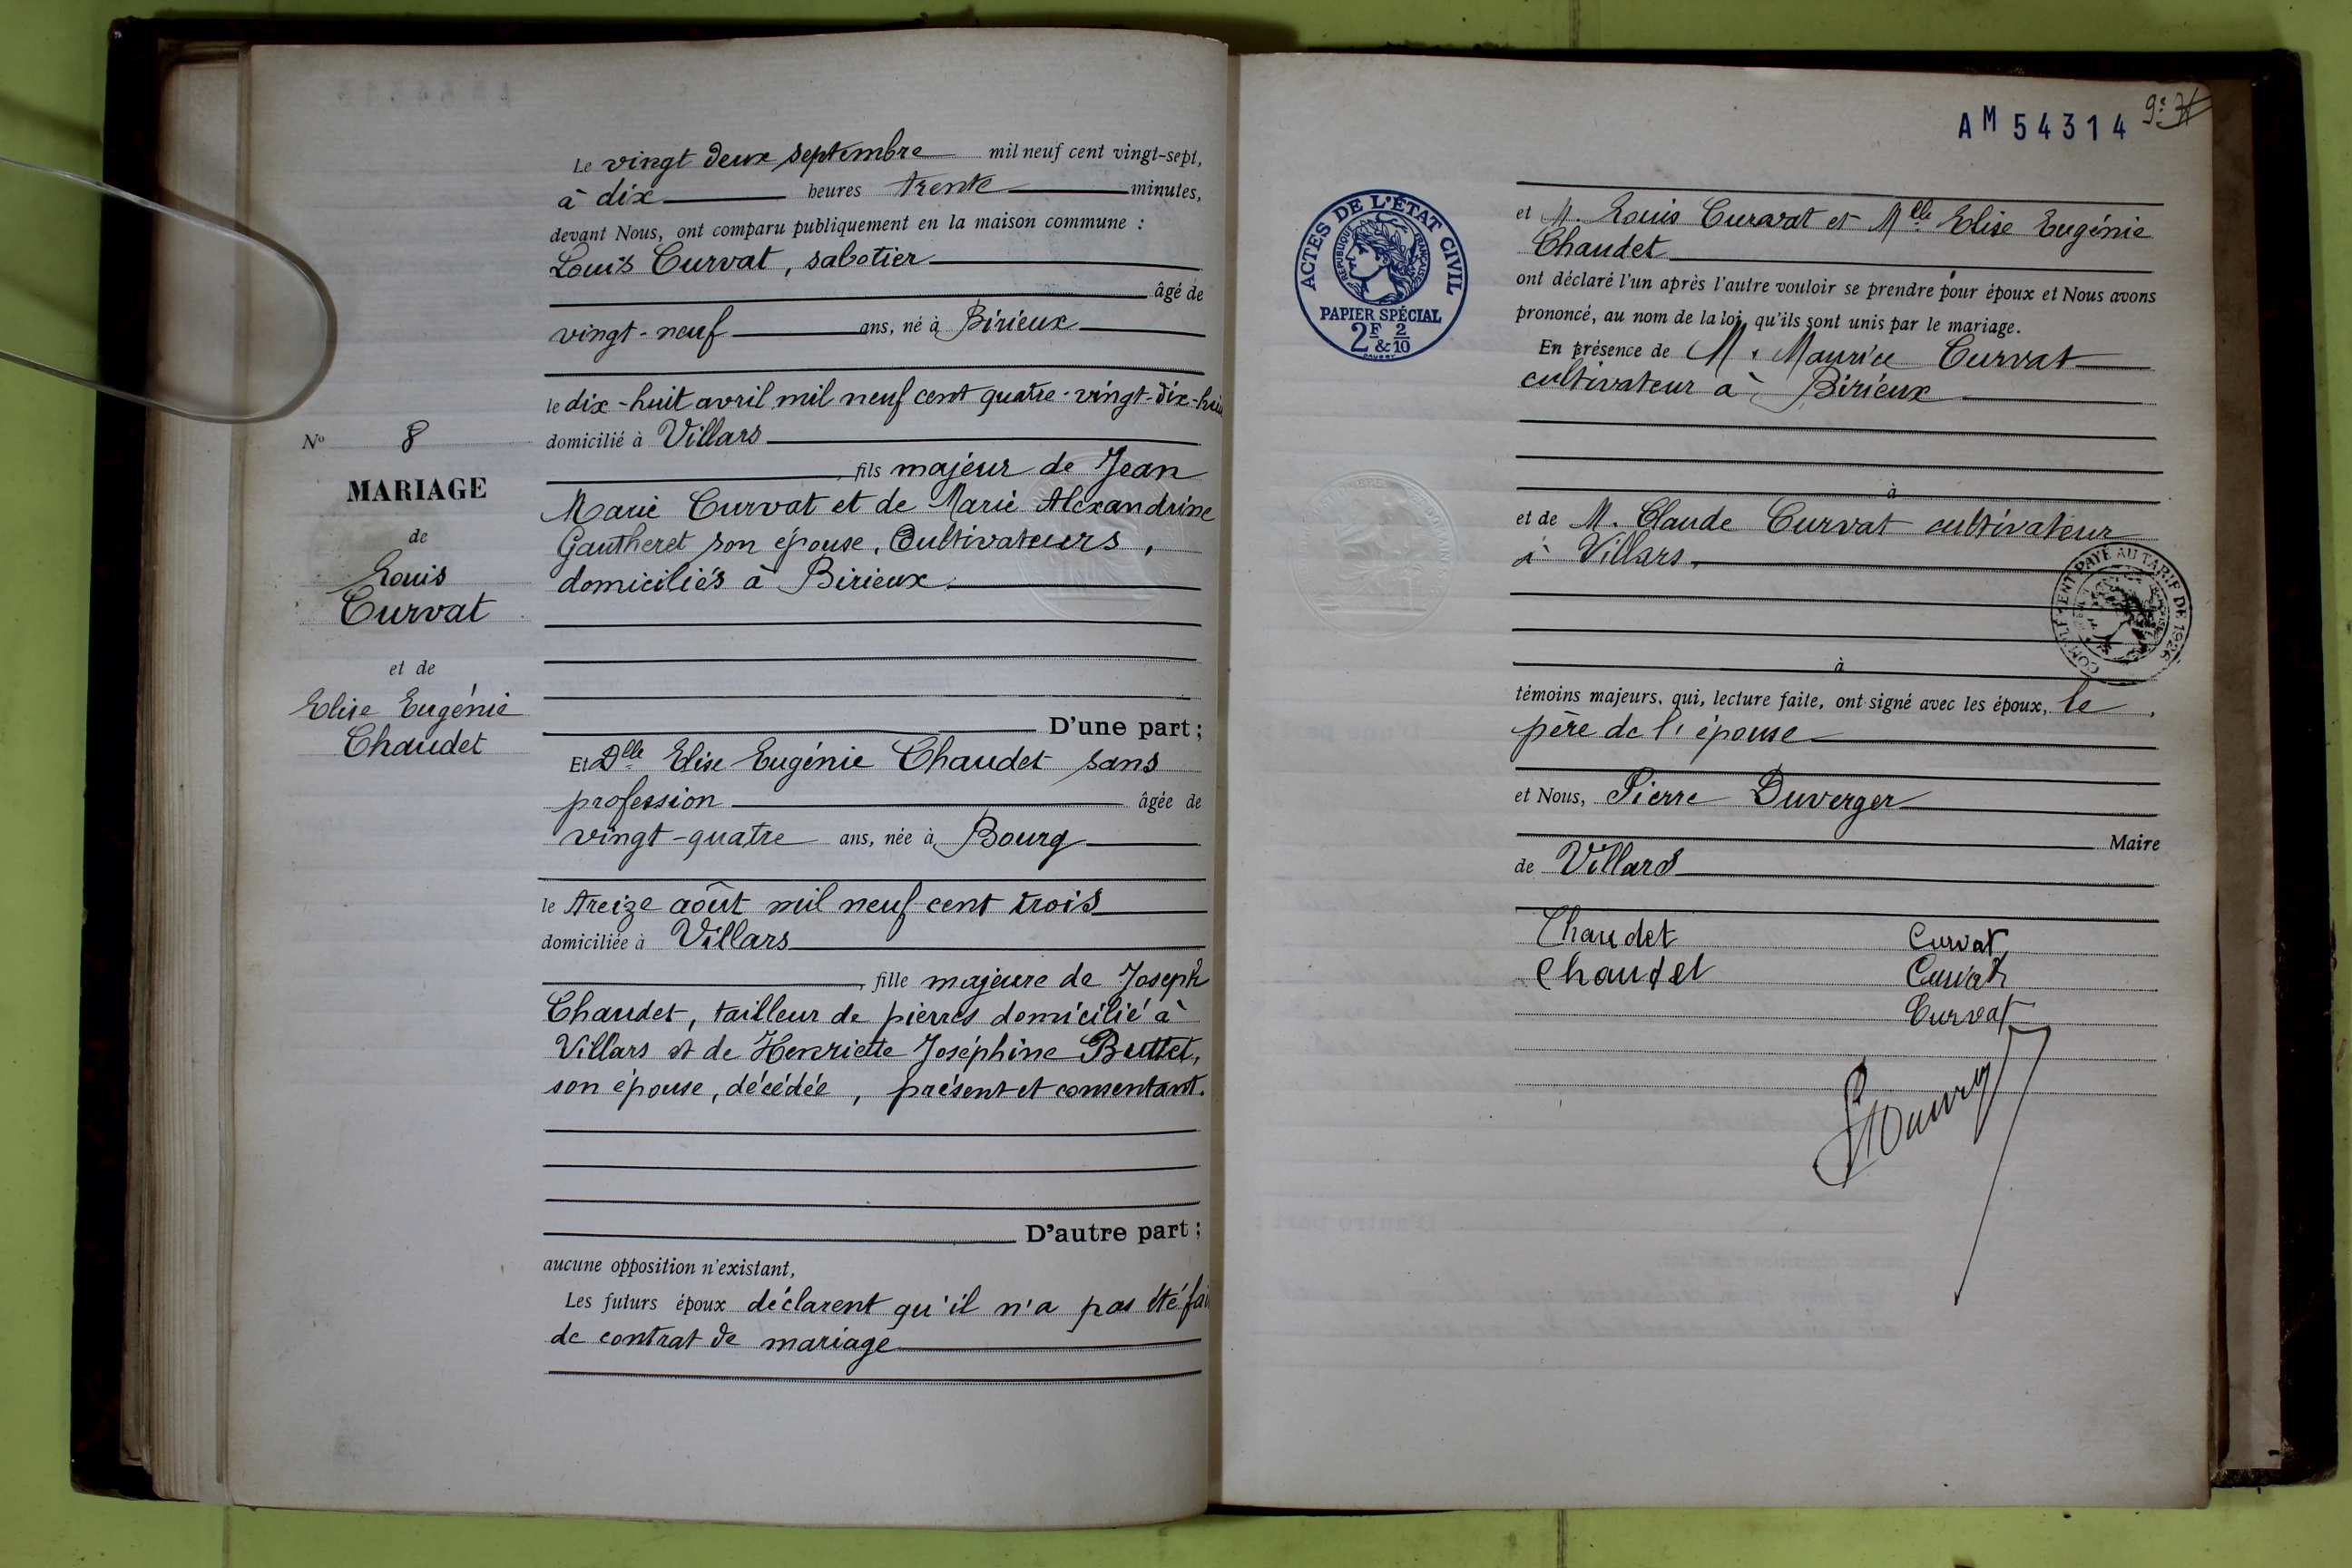 Le vingt deux septembre mil neuf cent vingt-sept,
à dix heures trente minutes,
devant Nous, ont comparu publiquement en la maison commune :
Louis Curvat, sabotier
âgé de
vingt-neuf ans, né à Birieux
le dix-huit avril mil neuf cent quatre-vingt-dix-hui
domicilié à Villars
fils majeur de Jean
Marie Curvat et de Marie Alexandrine
Gautheret son épouse, Cultivateurs,
domiciliés à Birieux.
D'une part ;
Et Dlle Elise Eugénie Chaudet sans
profession âgée de
vingt-quatre ans, née à Bourg
le treize août mil neuf cent trois
domiciliée à Villars
fille majeure de Joseph
Chaudet, tailleur de pierres domicilié à
Villars et de Henriette Joséphine Buttet,
son épouse, décédée, présent et consentant.
D'autre part ;
aucune opposition n'existant,
Les futurs époux déclarent qu'il n'a pas été fai
de contrat de mariage
No 8
MARIAGE
de
Louis
Curvat
et de
Elise Eugénie
Chaudet
AM 54314
9e
ACTES DE L'ÉTAT CIVIL
RÉPUBLIQUE FRANÇAISE
PAPIER SPÉCIAL
2F & 2/10
et M. Louis Curvat et Mlle Elise Eugénie
Chaudet
ont déclaré l'un après l'autre vouloir se prendre pour époux et Nous avons
prononcé, au nom de la loi, qu'ils sont unis par le mariage.
En présence de M. Maurice Curvat
cultivateur à Birieux
à
et de M. Claude Curvat cultivateur
à Villars.
COMPLÉMENT PAYÉ AU TARIF DE 1926
à
témoins majeurs, qui, lecture faite, ont signé avec les époux, le
père de l'épouse
et Nous, Pierre Duverger
Maire
de Villars
Chaudet Curvat
Chaudet Curvat
Curvat